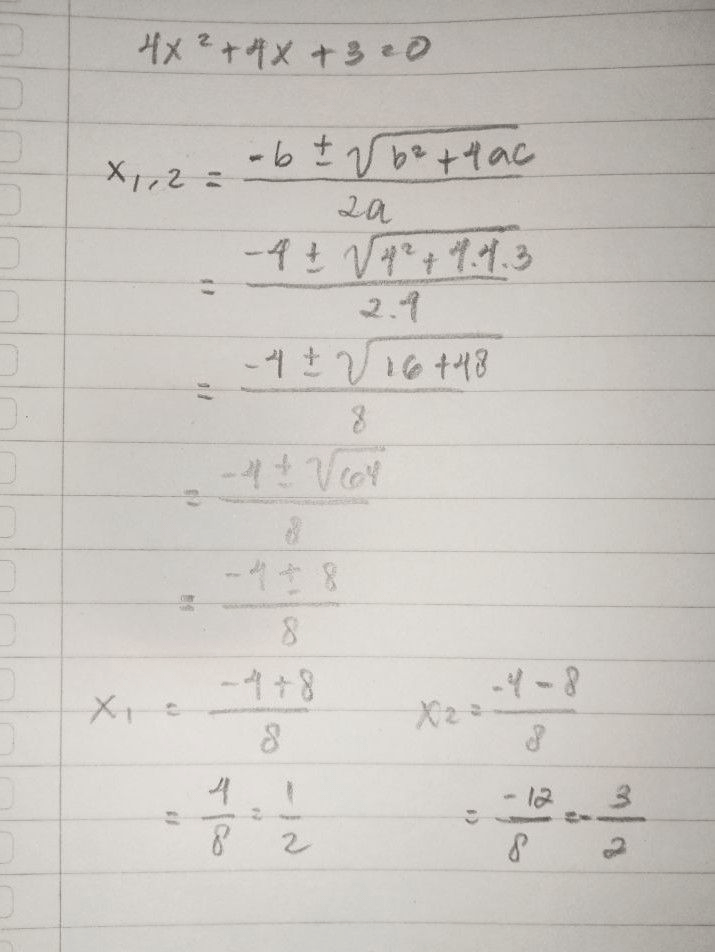 4x² + 4x + 3 = 0
x₁,₂ = (-b ± √(b² + 4ac)) / 2a
= (-4 ± √(4² + 4.4.3)) / 2.4
= (-4 ± √(16 + 48)) / 8
= (-4 ± √64) / 8
= (-4 ± 8) / 8
x₁ = (-4 + 8) / 8    x₂ = (-4 - 8) / 8
= 4/8 = 1/2    = -12/8 = -3/2